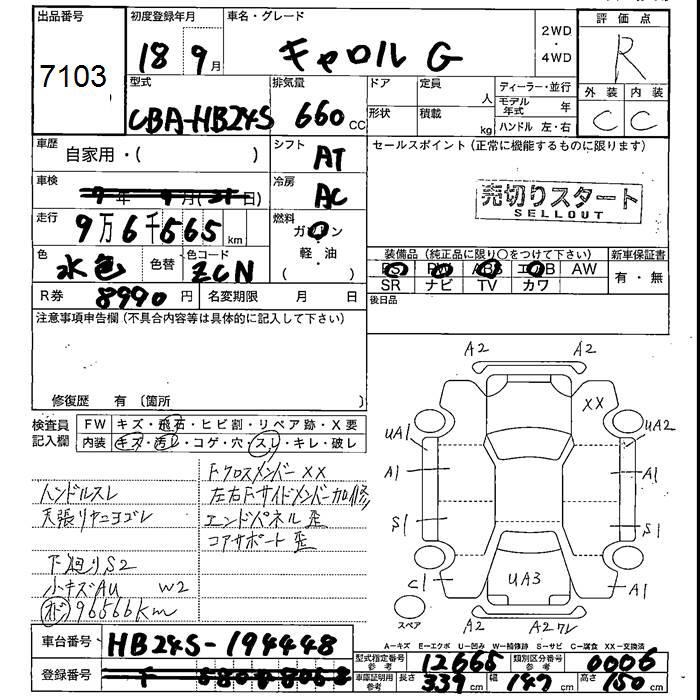 出品番号
7103
初度登録年月
18 9月
車名・グレード
キャロル G
2WD
・
4WD
評価点
R
外装 内装
C C
型式
CBA-HB24S
排気量
660 CC
ドア
形状
定員
人
積載
kg
ディーラー・並行
モデル年式 年
ハンドル 左・右
車歴
自家用・( )
シフト
AT
セールスポイント (正常に機能するものに限ります)
売切りスタート
SELLOUT
車検
冷房
AC
走行
9万6千565 km
燃料
ガソリン
軽・油
色
水色
色替
色コード
ZCN
装備品 (純正品に限り○をつけて下さい)
PS PW ABS エアB AW
SR ナビ TV カワ
新車保証書
有・無
R券
8990 円
名変期限 月 日
後日品
注意事項申告欄 (不具合内容等は具体的に記入して下さい)
修復歴 有 〔箇所 〕
検査員
記入欄
FW キズ・飛石・ヒビ割・リペア跡・X要
内装 キズ・汚レ・コゲ・穴・スレ・キレ・破レ
ハンドルスレ
天張リヤニヨゴレ
下廻りS2
小キズAU W2
オド 96566km
Fクロスメンバー XX
左右Fサイドメンバー加修
エンドパネル歪
コアサポート歪
A2 A2
XX
UA1 UA2
A1 A1
S1 S1
C1 A1
UA3
A2 A2ワレ
スペア
車台番号
HB24S-194448
登録番号
A-キズ E-エクボ U-凹み W-補修跡 S-サビ C-腐食 XX-交換済
型式指定番号
参考
12665
類別区分番号
参考
0006
車庫証明用
参考
長さ 339 cm 幅 147 cm 高さ 150 cm